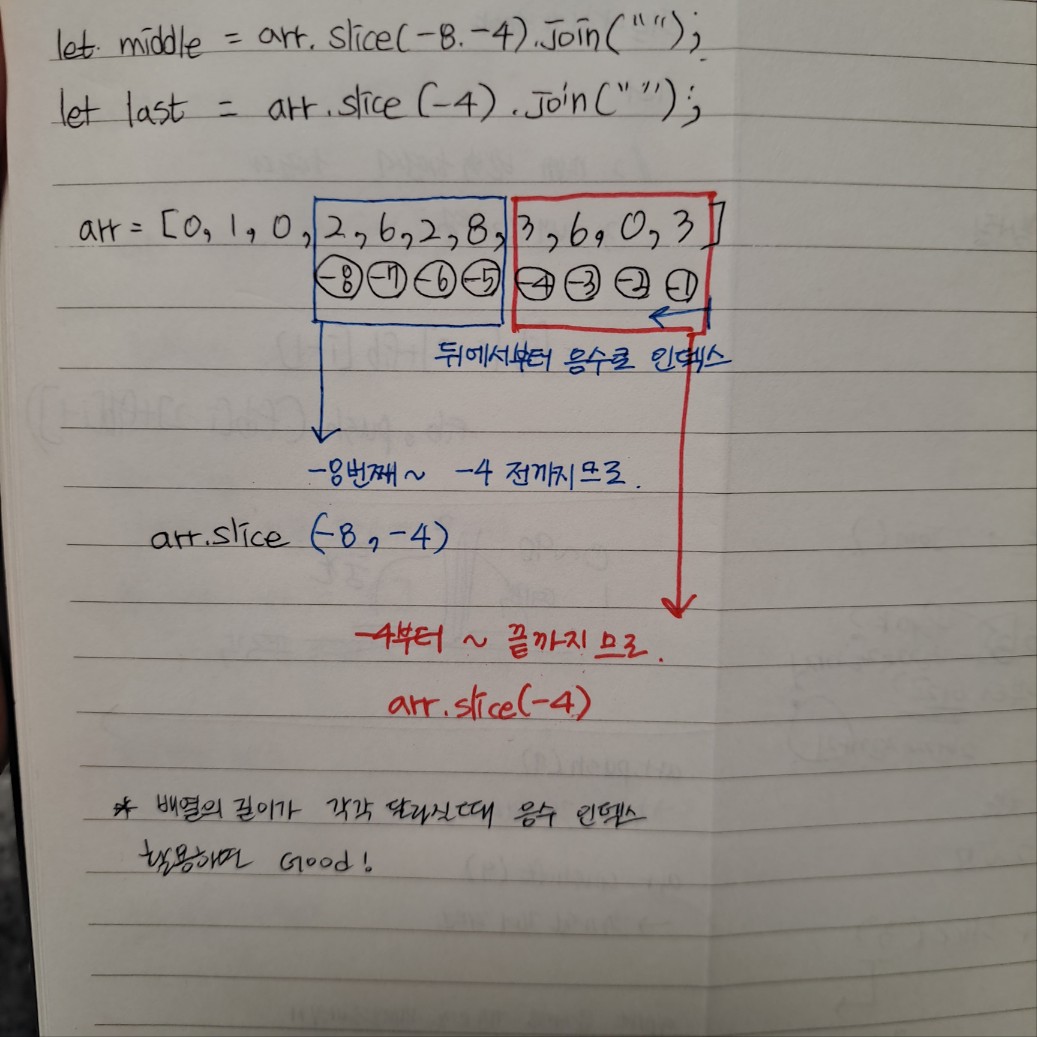 let middle = arr. slice(-8.-4).join("");
let last = arr.slice (-4) .join("");
arr = [0, 1, 0, 2, 6, 2, 8, 3, 6, 0, 3]
-8 -7 -6 -5 -4 -3 -2 -1
뒤에서부터 음수로 인덱스
-8번째~ -4 전까지므로.
arr.slice (-8, -4)
-4부터 ~ 끝까지므로.
arr.slice(-4)
* 배열의 길이가 각각 달라질때 음수 인덱스
활용하면 Good!